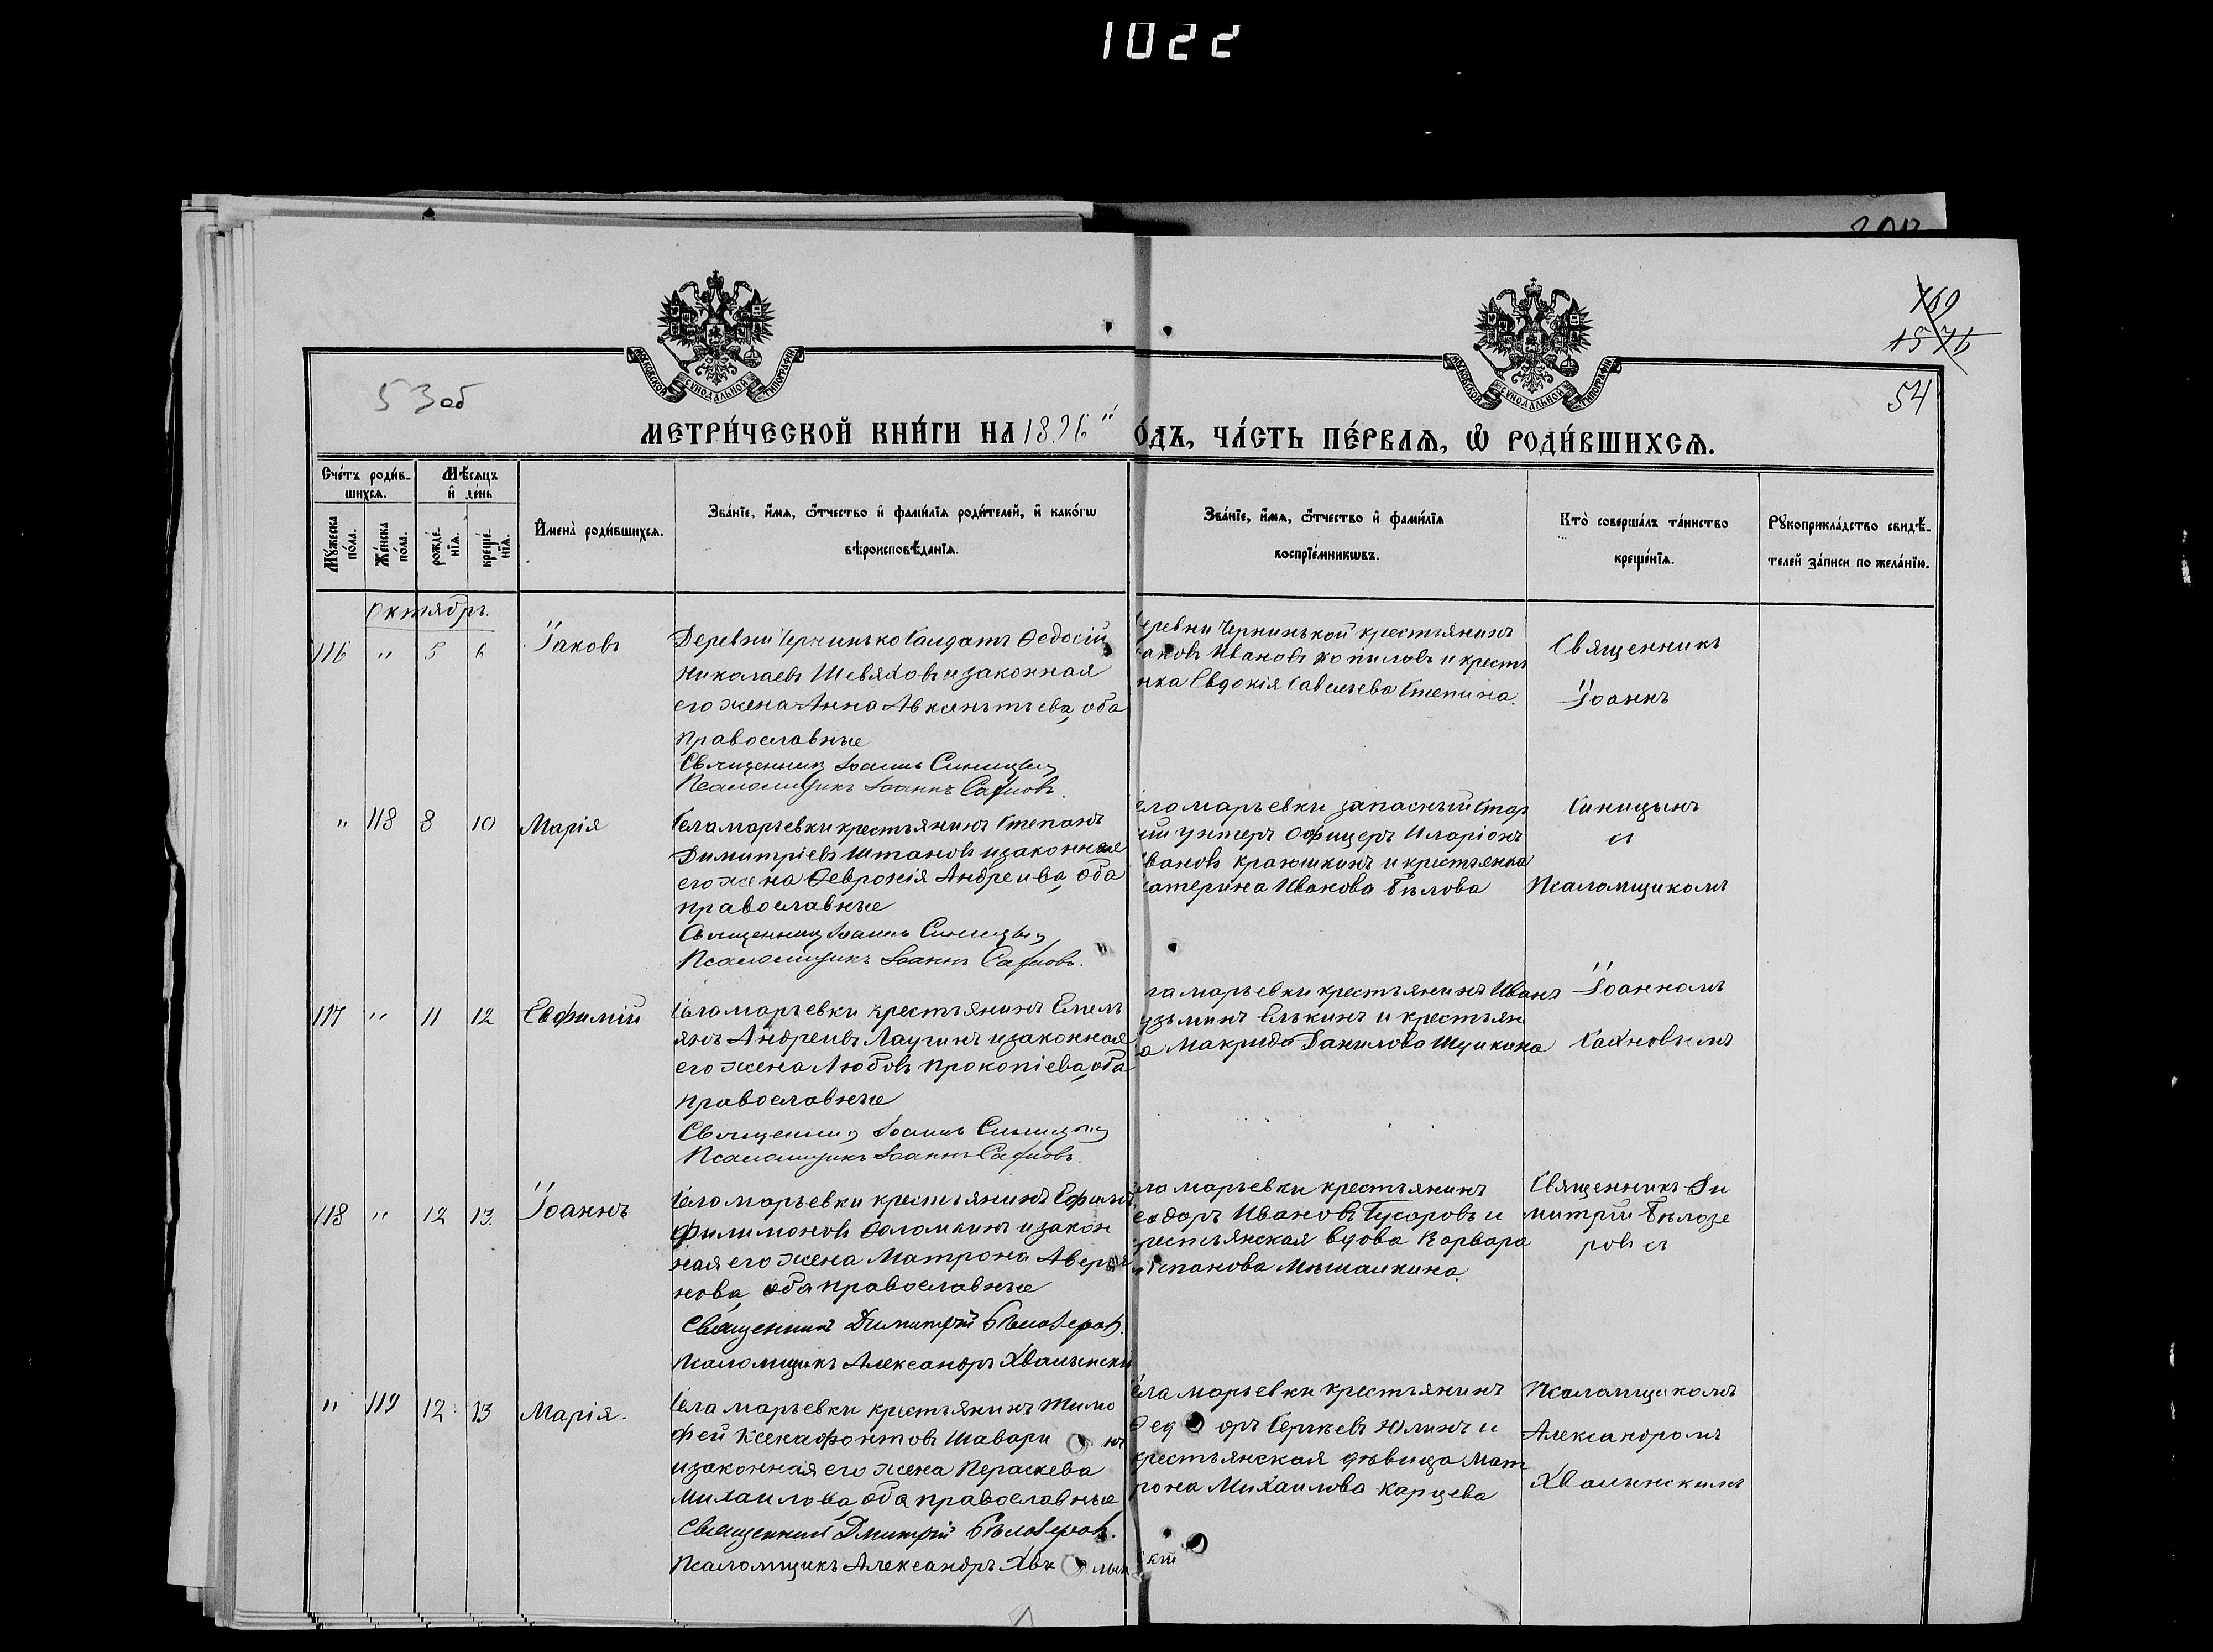 1022
169
1576
53об
54
МОСКОВСКОЙ СѴНОДАЛЬНОЙ ТИПОГРАФІИ
МОСКОВСКОЙ СѴНОДАЛЬНОЙ ТИПОГРАФІИ
МЕТРИ́ЧЕСКОЙ КНИ́ГИ НА 1896 ОДЪ, ЧА́СТЬ ПЕ́РВАѦ, Ѡ҆ РОДИ́ВШИХСѦ.
Сче́тъ роди́в-
шихсѧ.
Мѣ́сѧцъ
и҆ де́нь
Мꙋ́жеска
по́ла.
Же́нска
по́ла.
рожде́-
нїѧ.
креще́-
нїѧ.
И҆мена̀ роди́вшихсѧ.
Зва́нїе, и҆́мѧ, ѻ҆́тчество и҆ фами́лїѧ роди́телей, и҆ како́гѡ
вѣроисповѣ́данїѧ.
Зва́нїе, и҆́мѧ, ѻ҆́тчество и҆ фами́лїѧ
воспрїе́мникѡвъ.
Кто̀ соверша́лъ та́инство
креще́нїѧ.
Рꙋкоприкла́дство свидѣ́-
телей за́писи по жела́нїю.
Октябрь.
116 " 5 6 Іаковъ
Деревни Солдатъ Ѳедосій
Николаевъ Шевяховъ и законная
его жена Анна оба
православные
Священникъ Іоаннъ Синицынъ
Псаломщикъ Іоаннъ Сахновъ.
еревни крестьянинъ
аковъ Ивановъ Копиловъ и кресть
нка Евдокія Савельева Степина.
Священникъ
Іоаннъ
" 118 8 10 Марія
Села Марьевки крестьянинъ Степанъ
Димитріевъ Штановъ и законная
его жена Ѳевронія Андреива, оба
православные
Священникъ Іоаннъ Синицынъ
Псаломщикъ Іоаннъ Сахновъ.
ела Марьевки запасный Стар
ий унтеръ Офицеръ Иларіонъ
вановъ и крестьянка
катерина Иванова Бѣлова
Синицынъ
съ
Псаломщикомъ
117 " 11 12 Евфимій
Села Марьевки крестьянинъ Емель
янъ Андреивъ и законная
его жена Любовь Прокопіева, оба
православные
Священникъ Іоаннъ Синицынъ
Псаломщикъ Іоаннъ Сахновъ.
ла Марьевки крестьянинъ Иванъ
узьминъ Елькинъ и крестьян
а Макрида Данилова Щукина
Іоанномъ
Сахновымъ
118 " 12 13. Іоаннъ
Села Марьевки крестьянинъ Ефимъ
Филимоновъ Соломкинъ и закон
ная его жена Матрона Аверья
нова, оба православные
Священникъ Димитрій Бѣлозеровъ.
Псаломщикъ Александръ Хвалынскій
ла Марьевки крестьянинъ
еодоръ Ивановъ Гусаровъ и
рестьянская вдова Варвара
тепанова Мышалкина
Священникъ Ди
митрій Бѣлозе
ровъ съ
" 119 12 13 Марія.
Села Марьевки крестьянинъ Тимо
фей Ксенафонтовъ Шавари нъ
и законная его жена Пераскева
Михаилова, оба православные
Священникъ Дмитрій Бѣлозеровъ.
Псаломщикъ Александръ Хва лын скій
ела Марьевки крестьянинъ
Ѳед оръ Сергѣевъ Юлинъ и
крестьянская дѣвица Мат
рона Михаилова Карцева
Псаломщикомъ
Александромъ
Хвалынскимъ